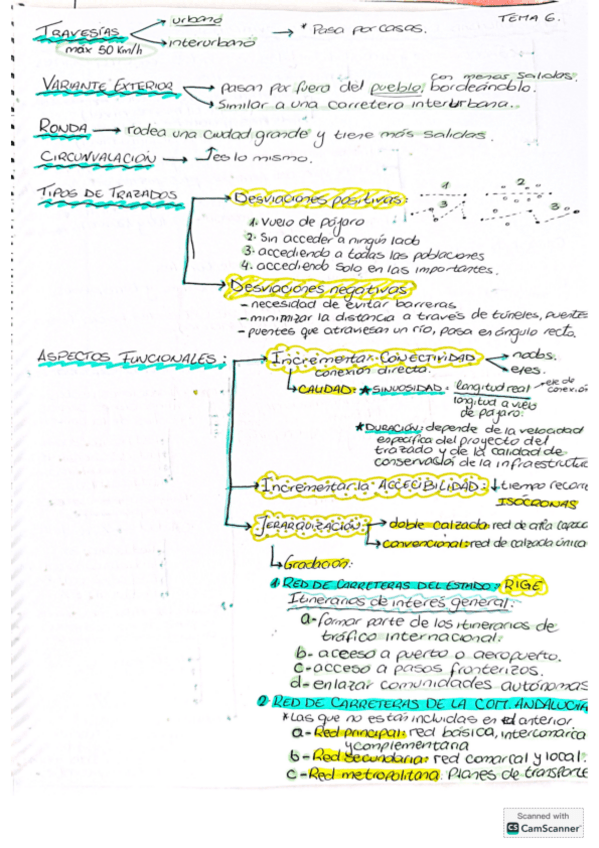 TEMA 6.
TRAVESÍAS
máx 50 Km/h
urbano
interurbano
* Pasa por casas.
VARIANTE EXTERIOR
pasan por fuera del pueblo, bordeándolo.
con menos salidas.
Similar a una carretera interurbana.
RONDA → rodea una ciudad grande y tiene más salidas.
CIRCUNVALACIÓN → es lo mismo.
TIPOS DE TRAZADOS
Desviaciones positivas:
1
2
3
3
1. Vuelo de pájaro
2. Sin acceder a ningún lado
3. accediendo a todas las poblaciones
4. accediendo solo en las importantes.
Desviaciones negativas
- necesidad de evitar barreras
- minimizar la distancia a través de túneles, puentes
- puentes que atraviesan un río, pasa en ángulo recto.
ASPECTOS FUNCIONALES:
Incrementar CONECTIVIDAD
conexión directa.
nodos.
ejes.
CALIDAD: * SINUOSIDAD: longitud real
longitud a vuelo
de pájaro.
eje de
conexión
* DURACIÓN: depende de la velocidad
específica del proyecto del
trazado y de la calidad de
conservación de la infraestructu
Incrementar la ACCECIBILIDAD: ↓ tiempo recor
ISÓCRONAS
JERARQUIZACIÓN:
doble calzada: red de alta capac
convencional: red de calzada única
Gradación:
1. RED DE CARRETERAS DEL ESTADO: RIGE
Itinerarios de interés general:
a- formar parte de los itinerarios de
tráfico internacional.
b- acceso a puerto o aeropuerto.
c- acceso a pasos fronterizos.
d- enlazar comunidades autónomas
2. RED DE CARRETERAS DE LA COM. ANDALUCÍA
* Las que no están incluidas en el anterior.
a- Red principal: red básica, intercomarca
y complementaria
b- Red secundaria: red comarcal y local.
c- Red metropolitana: Planes de transporte
Scanned with
CS CamScanner